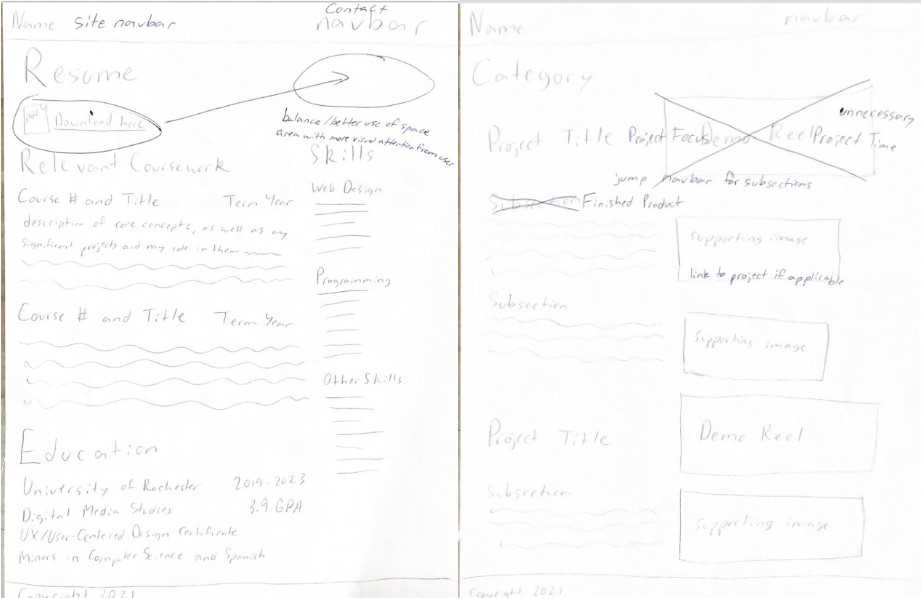 Name site navbar
Contact
navbar
Resume
Download here
balance/better use of space
area with more visual attention from user
Relevant Coursework
Skills
Course # and Title Term Year
description of core concepts, as well as any
significant projects and my role in them
Web Design
Programming
Course # and Title Term Year
Other Skills
Education
University of Rochester 2019-2023
Digital Media Studies 3.9 GPA
UX/User-Centered Design Certificate
Minors in Computer Science and Spanish
Copyright 2021
Name navbar
Category
unnecessary
Project Title Project Focus Demo Reel Project Time
jump navbar for subsections
Subsection Finished Product
Supporting image
link to project if applicable
Subsection
Supporting image
Project Title Demo Reel
Subsection
Supporting image
Copyright 2021